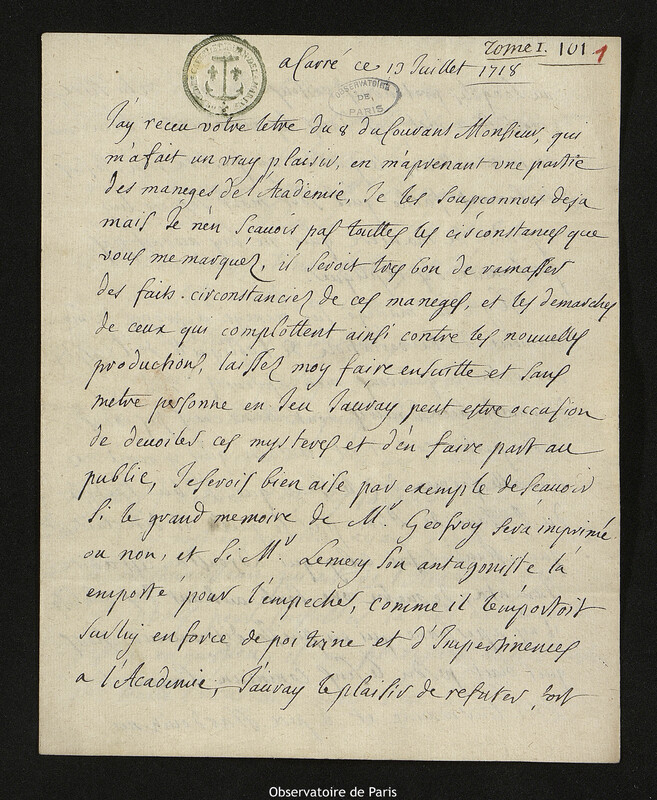 Tome I. 101 1
a Carré ce 13 Juillet 1718
OBSERVATOIRE DE PARIS
J'ay receu votre letre du 8 du Courans Monsieur, qui
m'a fait un vray plaisir, en m'aprenant une partie
des maneges de l'Academie, Je les soupconnois deja
mais Je n'en scavois pas touttes les circonstances que
vous me marquez, il seroit tres bon de ramasser
des faits circonstanciez de ces maneges, et les demarches
de ceux qui complottent ainsi contre les nouvelles
productions, laissez moy faire ensuitte et sans
metre personne en Jeu J'auray peut estre occasion
de devoiler ces mysteres et d'en faire part au
public, Je serois bien aise par exemple de scavoir
si le grand memoire de Mr. Geofroy sera imprimé
ou non, et si Mr. Lemery son antagoniste l'a
emporté pour l'empecher, comme il l'emportoit
sur luy en force de poitrine et d'Impertinences
a l'Academie, J'auray le plaisir de refuter fort
Observatoire de Paris